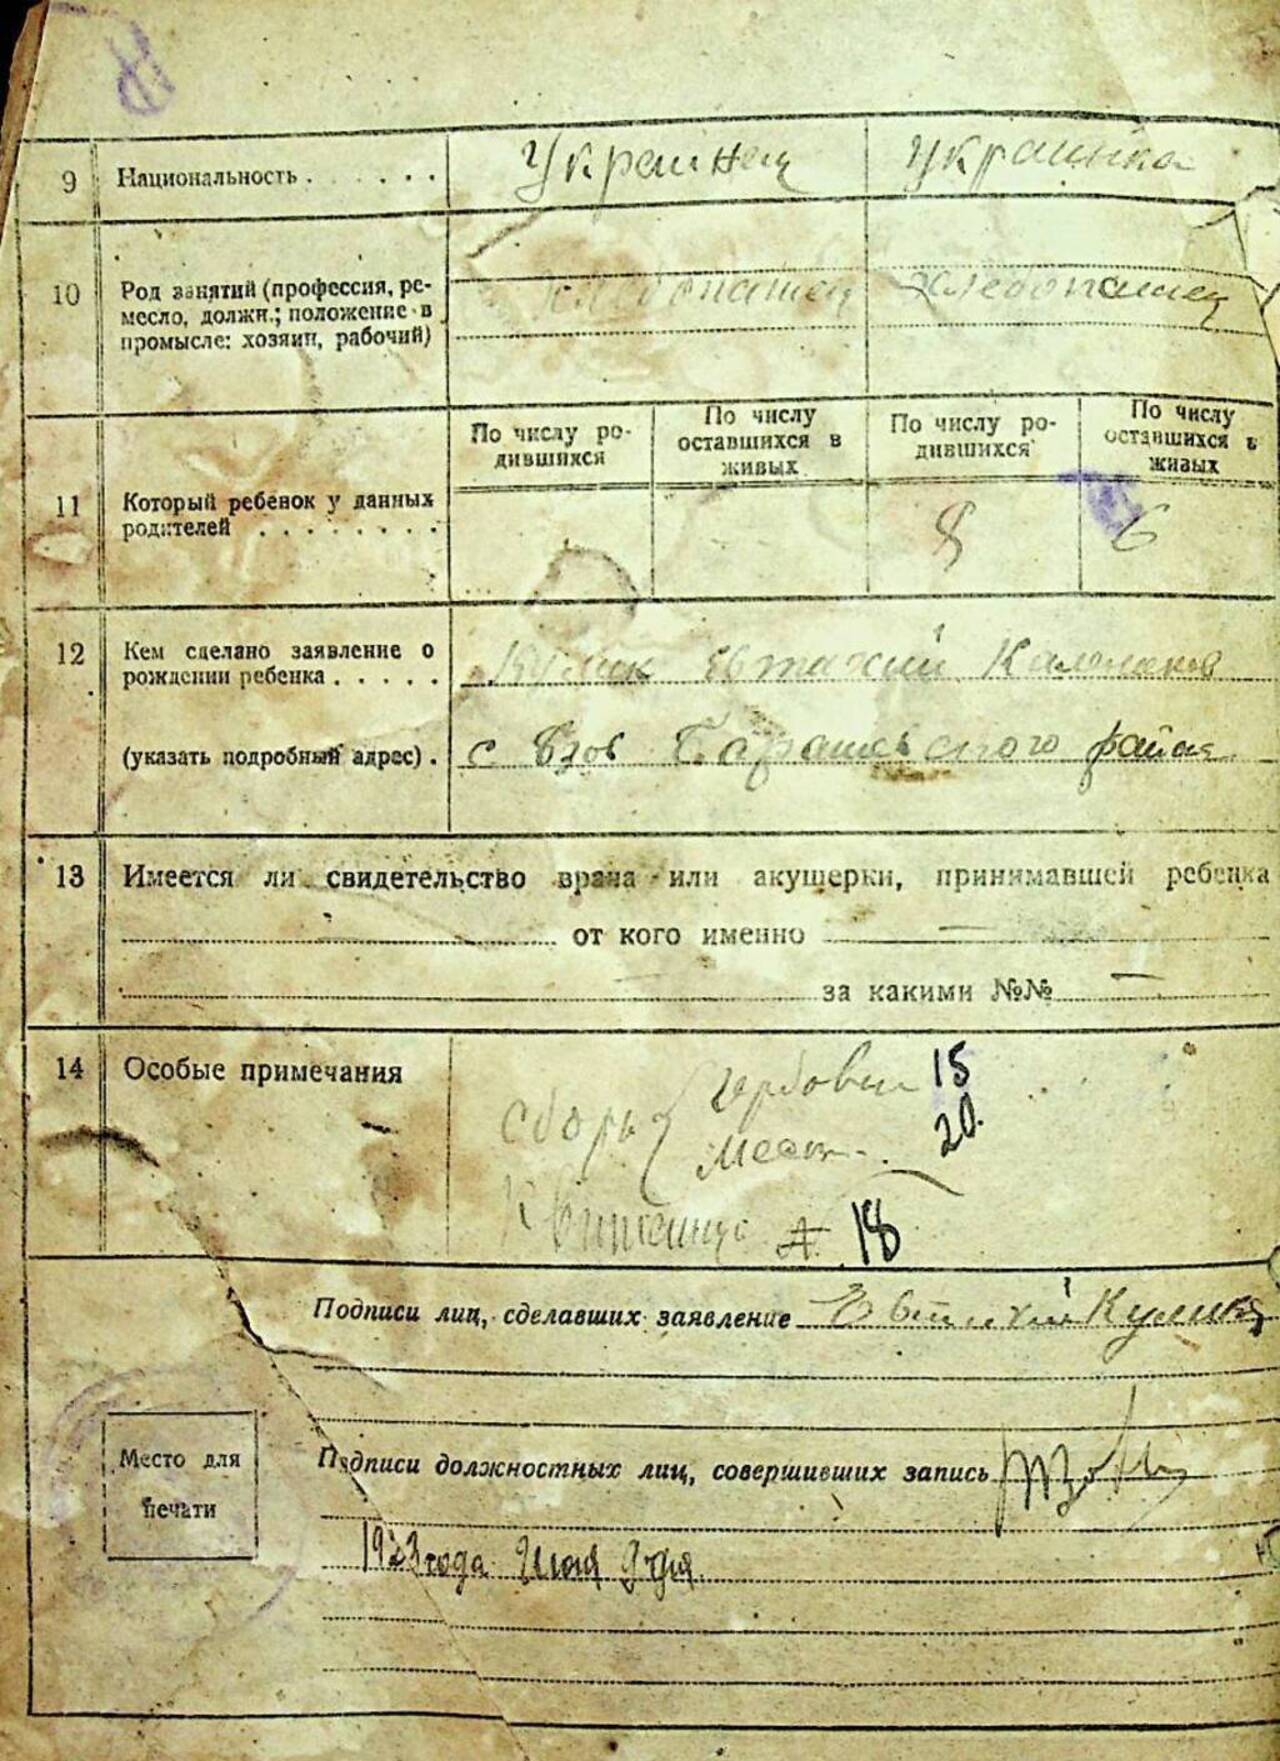 9 Национальность . . . . . . Украинец Украинка
10 Род занятий (профессия, ре-
месло, должн.; положение в
промысле: хозяин, рабочий)
хлебопашец хлебопашец
По числу ро-
дившихся
По числу
оставшихся в
живых
По числу ро-
дившихся
По числу
оставшихся в
живых
11 Который ребенок у данных
родителей . . . . . . . .
8 6
12 Кем сделано заявление о
рождении ребенка . . . . .
Кулик Евтихий
(указать подробный адрес) . с Бзов Барышевского района
13 Имеется ли свидетельство врача или акушерки, принимавшей ребенка
от кого именно —
за какими №№ —
14 Особые примечания
Сборы { Гербовый 15
Мест. 20.
Квитанция № 18
Подписи лиц, сделавших заявление Евтихий Кулик
Место для
печати
Подписи должностных лиц, совершивших запись
1923 года Июля 9 дня